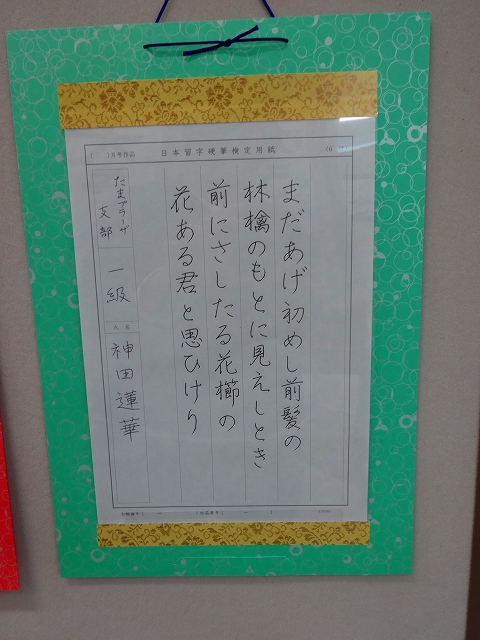 (　)月号作品
日本習字硬筆検定用紙
まだあげ初めし前髪の
林檎のもとに見えしとき
前にさしたる花櫛の
花ある君と思ひけり
たまプラーザ
支部
一級
氏名
神田蓮華